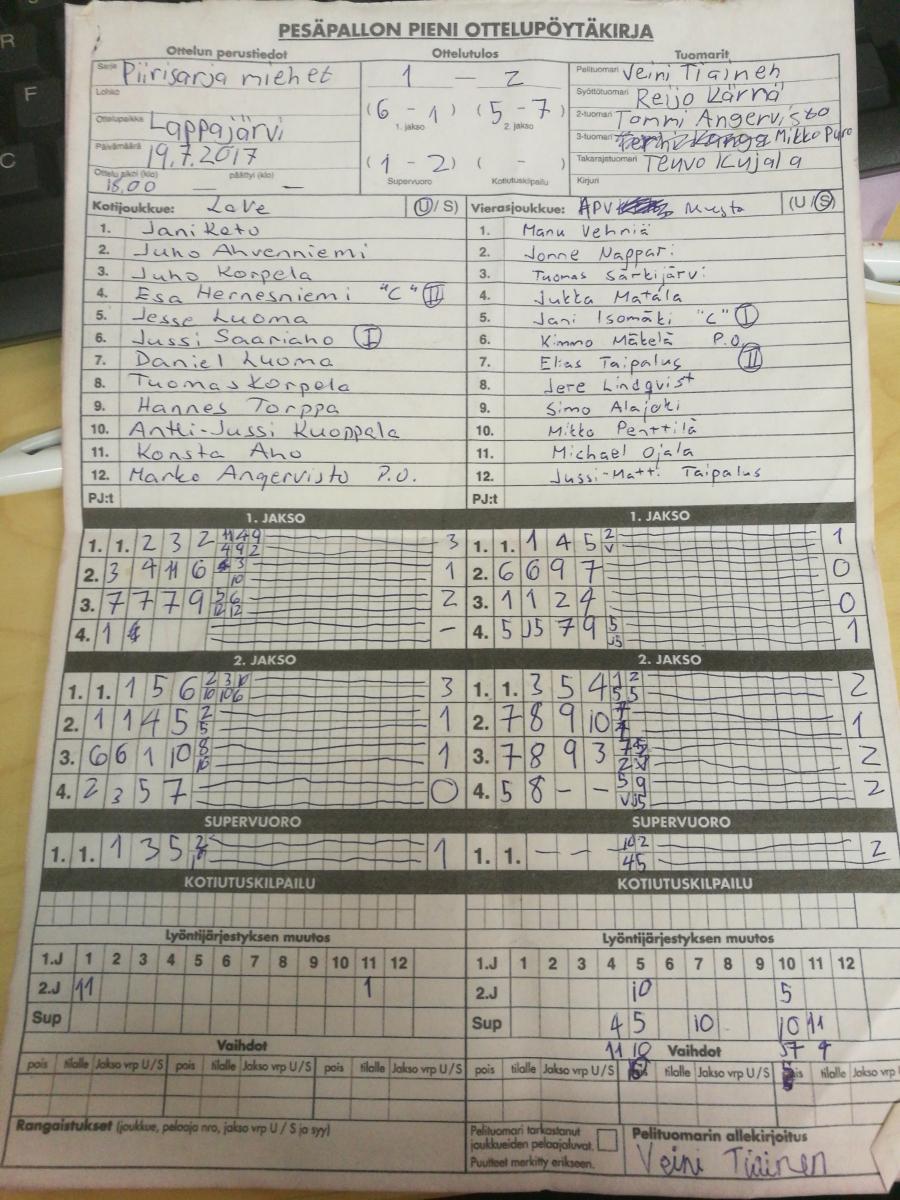 PESÄPALLON PIENI OTTELUPÖYTÄKIRJA
Ottelun perustiedot Ottelutulos Tuomarit
Sarja Piirisarja miehet 1 — 2 Pelituomari Veini Tiainen
Lohko (6 - 1) (5 - 7) Syöttötuomari Reijo Kärnä
Ottelupaikka Lappajärvi 1. jakso 2. jakso 2-tuomari Tommi Angervisto
Päivämäärä 19.7.2017 (1 - 2) ( - ) 3-tuomari Mikko Puro
Ottelu alkoi (klo) 18,00 — päättyi (klo) — Supervuoro Kotiutuskilpailu Takarajatuomari Teuvo Kujala
Kirjuri
Kotijoukkue: LaVe (U/S) Vierasjoukkue: APV Musta (U/S)
1. Jani Keto 1. Manu Vehniä
2. Juho Ahvenniemi 2. Jonne Nappari
3. Juho Korpela 3. Tuomas Särkijärvi
4. Esa Hernesniemi "C" II 4. Jukka Matala
5. Jesse Luoma 5. Jani Isomäki "C" I
6. Jussi Saariaho I 6. Kimmo Mäkelä P.O.
7. Daniel Luoma 7. Elias Taipalus II
8. Tuomas Korpela 8. Jere Lindqvist
9. Hannes Torppa 9. Simo Alajoki
10. Antti-Jussi Kuoppala 10. Mikko Penttilä
11. Konsta Aho 11. Michael Ojala
12. Marko Angervisto P.O. 12. Jussi-Matti Taipalus
PJ:t PJ:t
1. JAKSO 1. JAKSO
1. 1. 2 3 2 11 4 9 4 9 2 3 1. 1. 1 4 5 2 V 1
2. 3 4 11 6 3 10 1 2. 6 6 9 7 0
3. 7 7 7 9 6 12 12 2 3. 1 1 2 4 0
4. 1 - 4. 5 J5 7 9 5 J5 1
2. JAKSO 2. JAKSO
1. 1. 1 5 6 2 3 10 10 10 6 3 1. 1. 3 5 4 1 2 5 5 2
2. 1 1 4 5 2 5 1 2. 7 8 9 10 7 1
3. 6 6 1 10 8 10 1 3. 7 8 9 3 2
4. 2 3 5 7 0 4. 5 8 - - 5 9 V J5 2
SUPERVUORO SUPERVUORO
1. 1. 1 3 5 1 1. 1. — — 10 2 4 5 2
KOTIUTUSKILPAILU KOTIUTUSKILPAILU
Lyöntijärjestyksen muutos Lyöntijärjestyksen muutos
1.J 1 2 3 4 5 6 7 8 9 10 11 12 1.J 1 2 3 4 5 6 7 8 9 10 11 12
2.J 11 1 2.J 10 5
Sup Sup 4 5 10 10 11
Vaihdot 11 10 Vaihdot 57 4
pois tilalle Jakso vrp U/S pois tilalle Jakso vrp U/S pois tilalle Jakso vrp U/S pois tilalle Jakso vrp U/S tilalle Jakso vrp U/S tilalle Jakso vrp U
Rangaistukset (joukkue, pelaaja nro, jakso vrp U / S ja syy) Pelituomari tarkastanut joukkueiden pelaajaluvat. Pelituomarin allekirjoitus
Puutteet merkitty erikseen. Veini Tiainen